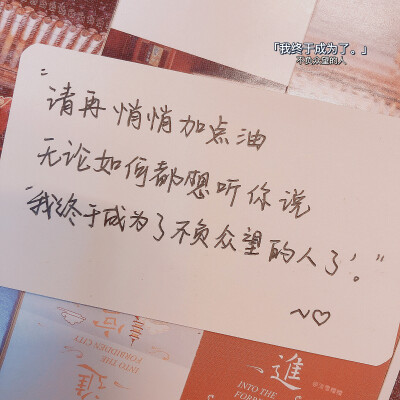 「我终于成为了。」
不负众望的人
“请再悄悄加点油
无论如何都想听你说
“我终于成为了不负众望的人了！”
~♡
INTO THE
FORBIDDEN CITY
進
進
INTO THE